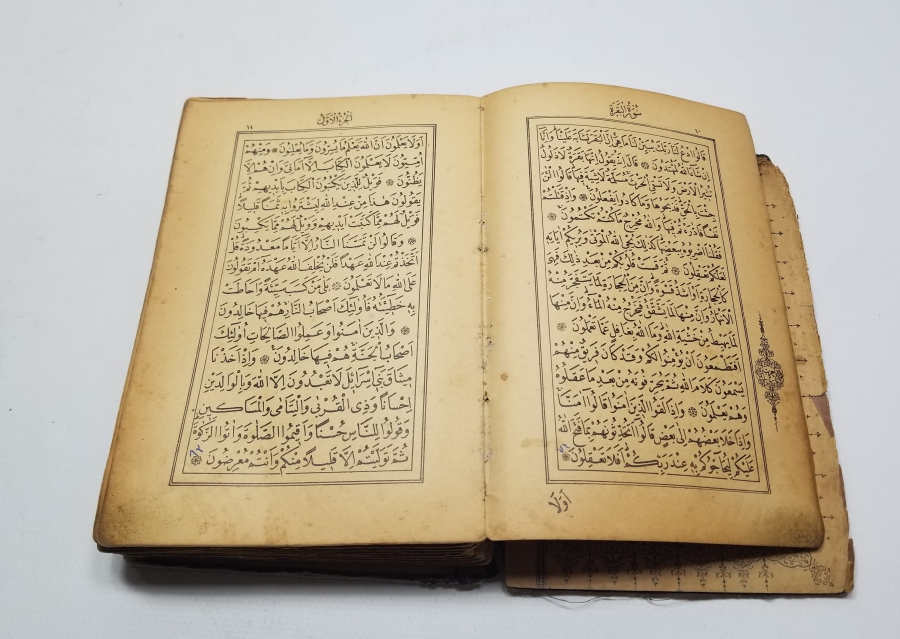 سُورَةُ الْبَقَرَةِ
١٠
قَالُوا ادْعُ لَنَا رَبَّكَ يُبَيِّنْ لَنَا مَا هِيَ اِنَّ الْبَقَرَ تَشَابَهَ عَلَيْنَا وَاِنَّا
اِنْ شَاءَ اللّٰهُ لَمُهْتَدُونَ ۞ قَالَ اِنَّهُ يَقُولُ اِنَّهَا بَقَرَةٌ لَا ذَلُولٌ
تُثِيرُ الْاَرْضَ وَلَا تَسْقِي الْحَرْثَ مُسَلَّمَةٌ لَا شِيَةَ فِيهَا قَالُوا الْئٰنَ
جِئْتَ بِالْحَقِّ فَذَبَحُوهَا وَمَا كَادُوا يَفْعَلُونَ ۞ وَاِذْ قَتَلْتُمْ
نَفْسًا فَادَّارَءْتُمْ فِيهَا وَاللّٰهُ مُخْرِجٌ مَا كُنْتُمْ تَكْتُمُونَ ۞
فَقُلْنَا اضْرِبُوهُ بِبَعْضِهَا كَذٰلِكَ يُحْيِي اللّٰهُ الْمَوْتٰى وَيُرِيكُمْ اٰيَاتِهِ
لَعَلَّكُمْ تَعْقِلُونَ ۞ ثُمَّ قَسَتْ قُلُوبُكُمْ مِنْ بَعْدِ ذٰلِكَ فَهِيَ
كَالْحِجَارَةِ اَوْ اَشَدُّ قَسْوَةً وَاِنَّ مِنَ الْحِجَارَةِ لَمَا يَتَفَجَّرُ مِنْهُ
الْاَنْهَارُ وَاِنَّ مِنْهَا لَمَا يَشَّقَّقُ فَيَخْرُجُ مِنْهُ الْمَاءُ وَاِنَّ مِنْهَا
لَمَا يَهْبِطُ مِنْ خَشْيَةِ اللّٰهِ وَمَا اللّٰهُ بِغَافِلٍ عَمَّا تَعْمَلُونَ ۞
اَفَتَطْمَعُونَ اَنْ يُؤْمِنُوا لَكُمْ وَقَدْ كَانَ فَرِيقٌ مِنْهُمْ
يَسْمَعُونَ كَلَامَ اللّٰهِ ثُمَّ يُحَرِّفُونَهُ مِنْ بَعْدِ مَا عَقَلُوهُ
وَهُمْ يَعْلَمُونَ ۞ وَاِذَا لَقُوا الَّذِينَ اٰمَنُوا قَالُوا اٰمَنَّا
وَاِذَا خَلَا بَعْضُهُمْ اِلٰى بَعْضٍ قَالُوا اَتُحَدِّثُونَهُمْ بِمَا فَتَحَ اللّٰهُ
عَلَيْكُمْ لِيُحَاجُّوكُمْ بِهِ عِنْدَ رَبِّكُمْ اَفَلَا تَعْقِلُونَ ۞
اَوَلَا
اَلْجُزْءُ الْاَوَّلُ
١١
اَوَلَا يَعْلَمُونَ اَنَّ اللّٰهَ يَعْلَمُ مَا يُسِرُّونَ وَمَا يُعْلِنُونَ ۞ وَمِنْهُمْ
اُمِّيُّونَ لَا يَعْلَمُونَ الْكِتَابَ اِلَّا اَمَانِيَّ وَاِنْ هُمْ اِلَّا
يَظُنُّونَ ۞ فَوَيْلٌ لِلَّذِينَ يَكْتُبُونَ الْكِتَابَ بِاَيْدِيهِمْ ثُمَّ
يَقُولُونَ هٰذَا مِنْ عِنْدِ اللّٰهِ لِيَشْتَرُوا بِهِ ثَمَنًا قَلِيلًا
فَوَيْلٌ لَهُمْ مِمَّا كَتَبَتْ اَيْدِيهِمْ وَوَيْلٌ لَهُمْ مِمَّا يَكْسِبُونَ
۞ وَقَالُوا لَنْ تَمَسَّنَا النَّارُ اِلَّا اَيَّامًا مَعْدُودَةً قُلْ
اَتَّخَذْتُمْ عِنْدَ اللّٰهِ عَهْدًا فَلَنْ يُخْلِفَ اللّٰهُ عَهْدَهُ اَمْ تَقُولُونَ
عَلَى اللّٰهِ مَا لَا تَعْلَمُونَ ۞ بَلٰى مَنْ كَسَبَ سَيِّئَةً وَاَحَاطَتْ
بِهِ خَطِيئَتُهُ فَاُولٰئِكَ اَصْحَابُ النَّارِ هُمْ فِيهَا خَالِدُونَ
۞ وَالَّذِينَ اٰمَنُوا وَعَمِلُوا الصَّالِحَاتِ اُولٰئِكَ
اَصْحَابُ الْجَنَّةِ هُمْ فِيهَا خَالِدُونَ ۞ وَاِذْ اَخَذْنَا
مِيثَاقَ بَنِي اِسْرَائِلَ لَا تَعْبُدُونَ اِلَّا اللّٰهَ وَبِالْوَالِدَيْنِ
اِحْسَانًا وَذِي الْقُرْبٰى وَالْيَتَامٰى وَالْمَسَاكِينِ
وَقُولُوا لِلنَّاسِ حُسْنًا وَاَقِيمُوا الصَّلٰوةَ وَاٰتُوا الزَّكٰوةَ
ثُمَّ تَوَلَّيْتُمْ اِلَّا قَلِيلًا مِنْكُمْ وَاَنْتُمْ مُعْرِضُونَ ۞